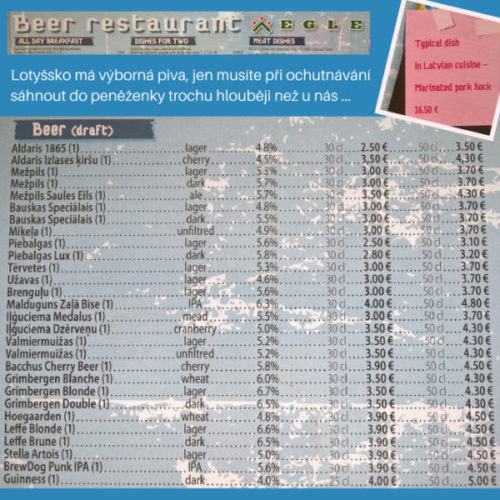 Beer restaurant EGLE
ALL DAY BREAKFAST DISHES FOR TWO MEAT DISHES
Lotyšsko má výborná piva, jen musíte při ochutnávání
sáhnout do peněženky trochu hlouběji než u nás ...
Typical dish
in Latvian cuisine –
Marinated pork hock
16.50 €
Beer (draft)
Aldaris 1865 (1) lager 4.8% 30 cl 2.50 € 50 cl 3.50 €
Aldaris Izlases ķiršu (1) cherry 4,5% 30 cl 3,50 € 50 cl 4,30 €
Mežpils (1) lager 5.3% 30 cl 3.00 € 50 cl 3.70 €
Mežpils (1) dark 5.7% 30 cl 3.00 € 50 cl 3.70 €
Mežpils Saules Eils (1) ale 5.7% 30 cl 3.50 € 50 cl 4.30 €
Bauskas Speciālais (1) lager 4.8% 30 cl 3.00 € 50 cl 3.70 €
Bauskas Speciālais (1) dark 5.5% 30 cl 3.00 € 50 cl 3.70 €
Miķeļa (1) unfiltred 4.9% 30 cl 3.00 € 50 cl 3,70 €
Piebalgas (1) lager 5.6% 30 cl 2.50 € 50 cl 3.10 €
Piebalgas Lux (1) dark 5.8% 30 cl 2.80 € 50 cl 3.20 €
Tērvetes (1) lager 5.3% 30 cl 3.00 € 50 cl 3.70 €
Užavas (1) lager 4.6% 30 cl 3.00 € 50 cl 3.70 €
Brenguļu (1) lager 5.6% 30 cl 3.00 € 50 cl 3.70 €
Malduguns Zaļā Bise (1) IPA 6.3% 30 cl 4.00 € 50 cl 4.80 €
Iļģuciema Medalus (1) mead 5.5% 30 cl 3.00 € 50 cl 3.70 €
Iļģuciema Dzērveņu (1) cranberry 4.0% 30 cl 3.50 € 50 cl 4.30 €
Valmiermuižas (1) lager 5.2% 30 cl 3.50 € 50 cl 4.30 €
Valmiermuižas (1) unfiltred 5.2% 30 cl 3.50 € 50 cl 4.30 €
Bacchus Cherry Beer (1) cherry 5.8% 30 cl 3.90 € 50 cl 4.50 €
Grimbergen Blanche (1) wheat 6.0% 30 cl 3.50 € 50 cl 4.30 €
Grimbergen Blonde (1) lager 6.7% 30 cl 3.50 € 50 cl 4.30 €
Grimbergen Double (1) dark 6.5% 30 cl 3.50 € 50 cl 4.30 €
Hoegaarden (1) wheat 4.8% 30 cl 3.90 € 50 cl 4.50 €
Leffe Blonde (1) lager 6.6% 30 cl 3.90 € 50 cl 4.50 €
Leffe Brune (1) dark 6.5% 30 cl 3.90 € 50 cl 4.50 €
Stella Artois (1) lager 5.0% 30 cl 3.90 € 50 cl 4.50 €
BrewDog Punk IPA (1) IPA 5.6% 30 cl 3.90 € 50 cl 4.50 €
Guinness (1) dark 4.0% 25 cl 4.00 € 50 cl 5.00 €